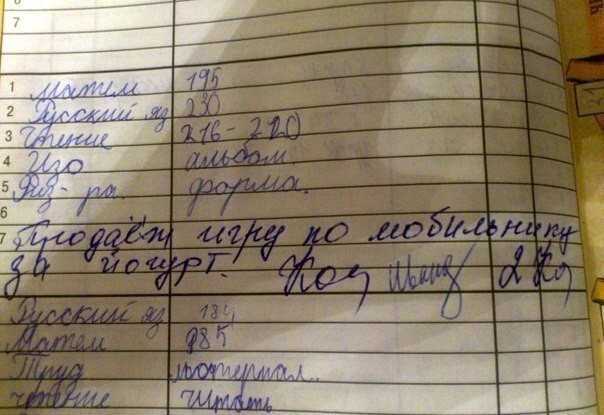 7
1 матем 195
2 Русский яз 230
3 Чтение 216-220
4 Изо альбом.
5 Физ-ра. форма.
6
7 Продаёт игру по мобильнику
за йогурт.
Русский яз 184
Матем 985
Труд материал..
чтение Читать